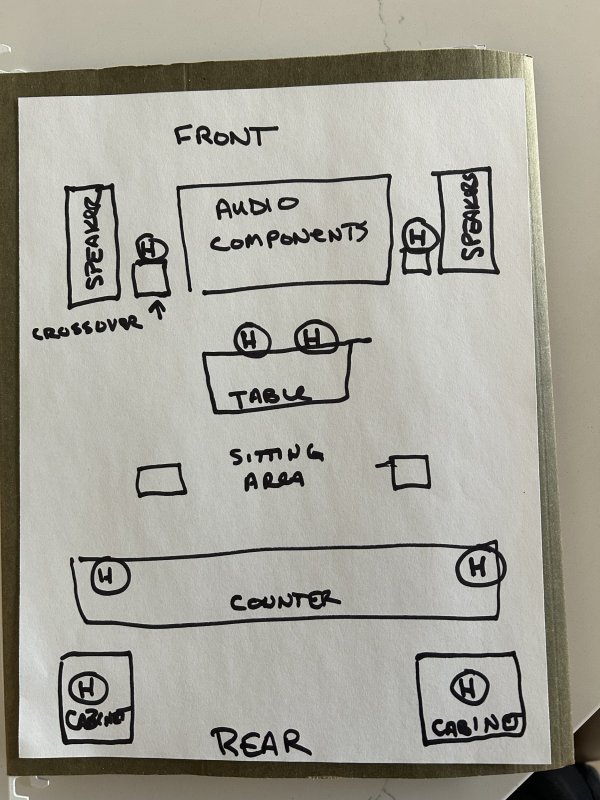 FRONT
SPEAKER
H
AUDIO
COMPONENTS
H
SPEAKERS
CROSSOVER
H H
TABLE
SITTING
AREA
H H
COUNTER
H
CABINET
H
CABINET
REAR